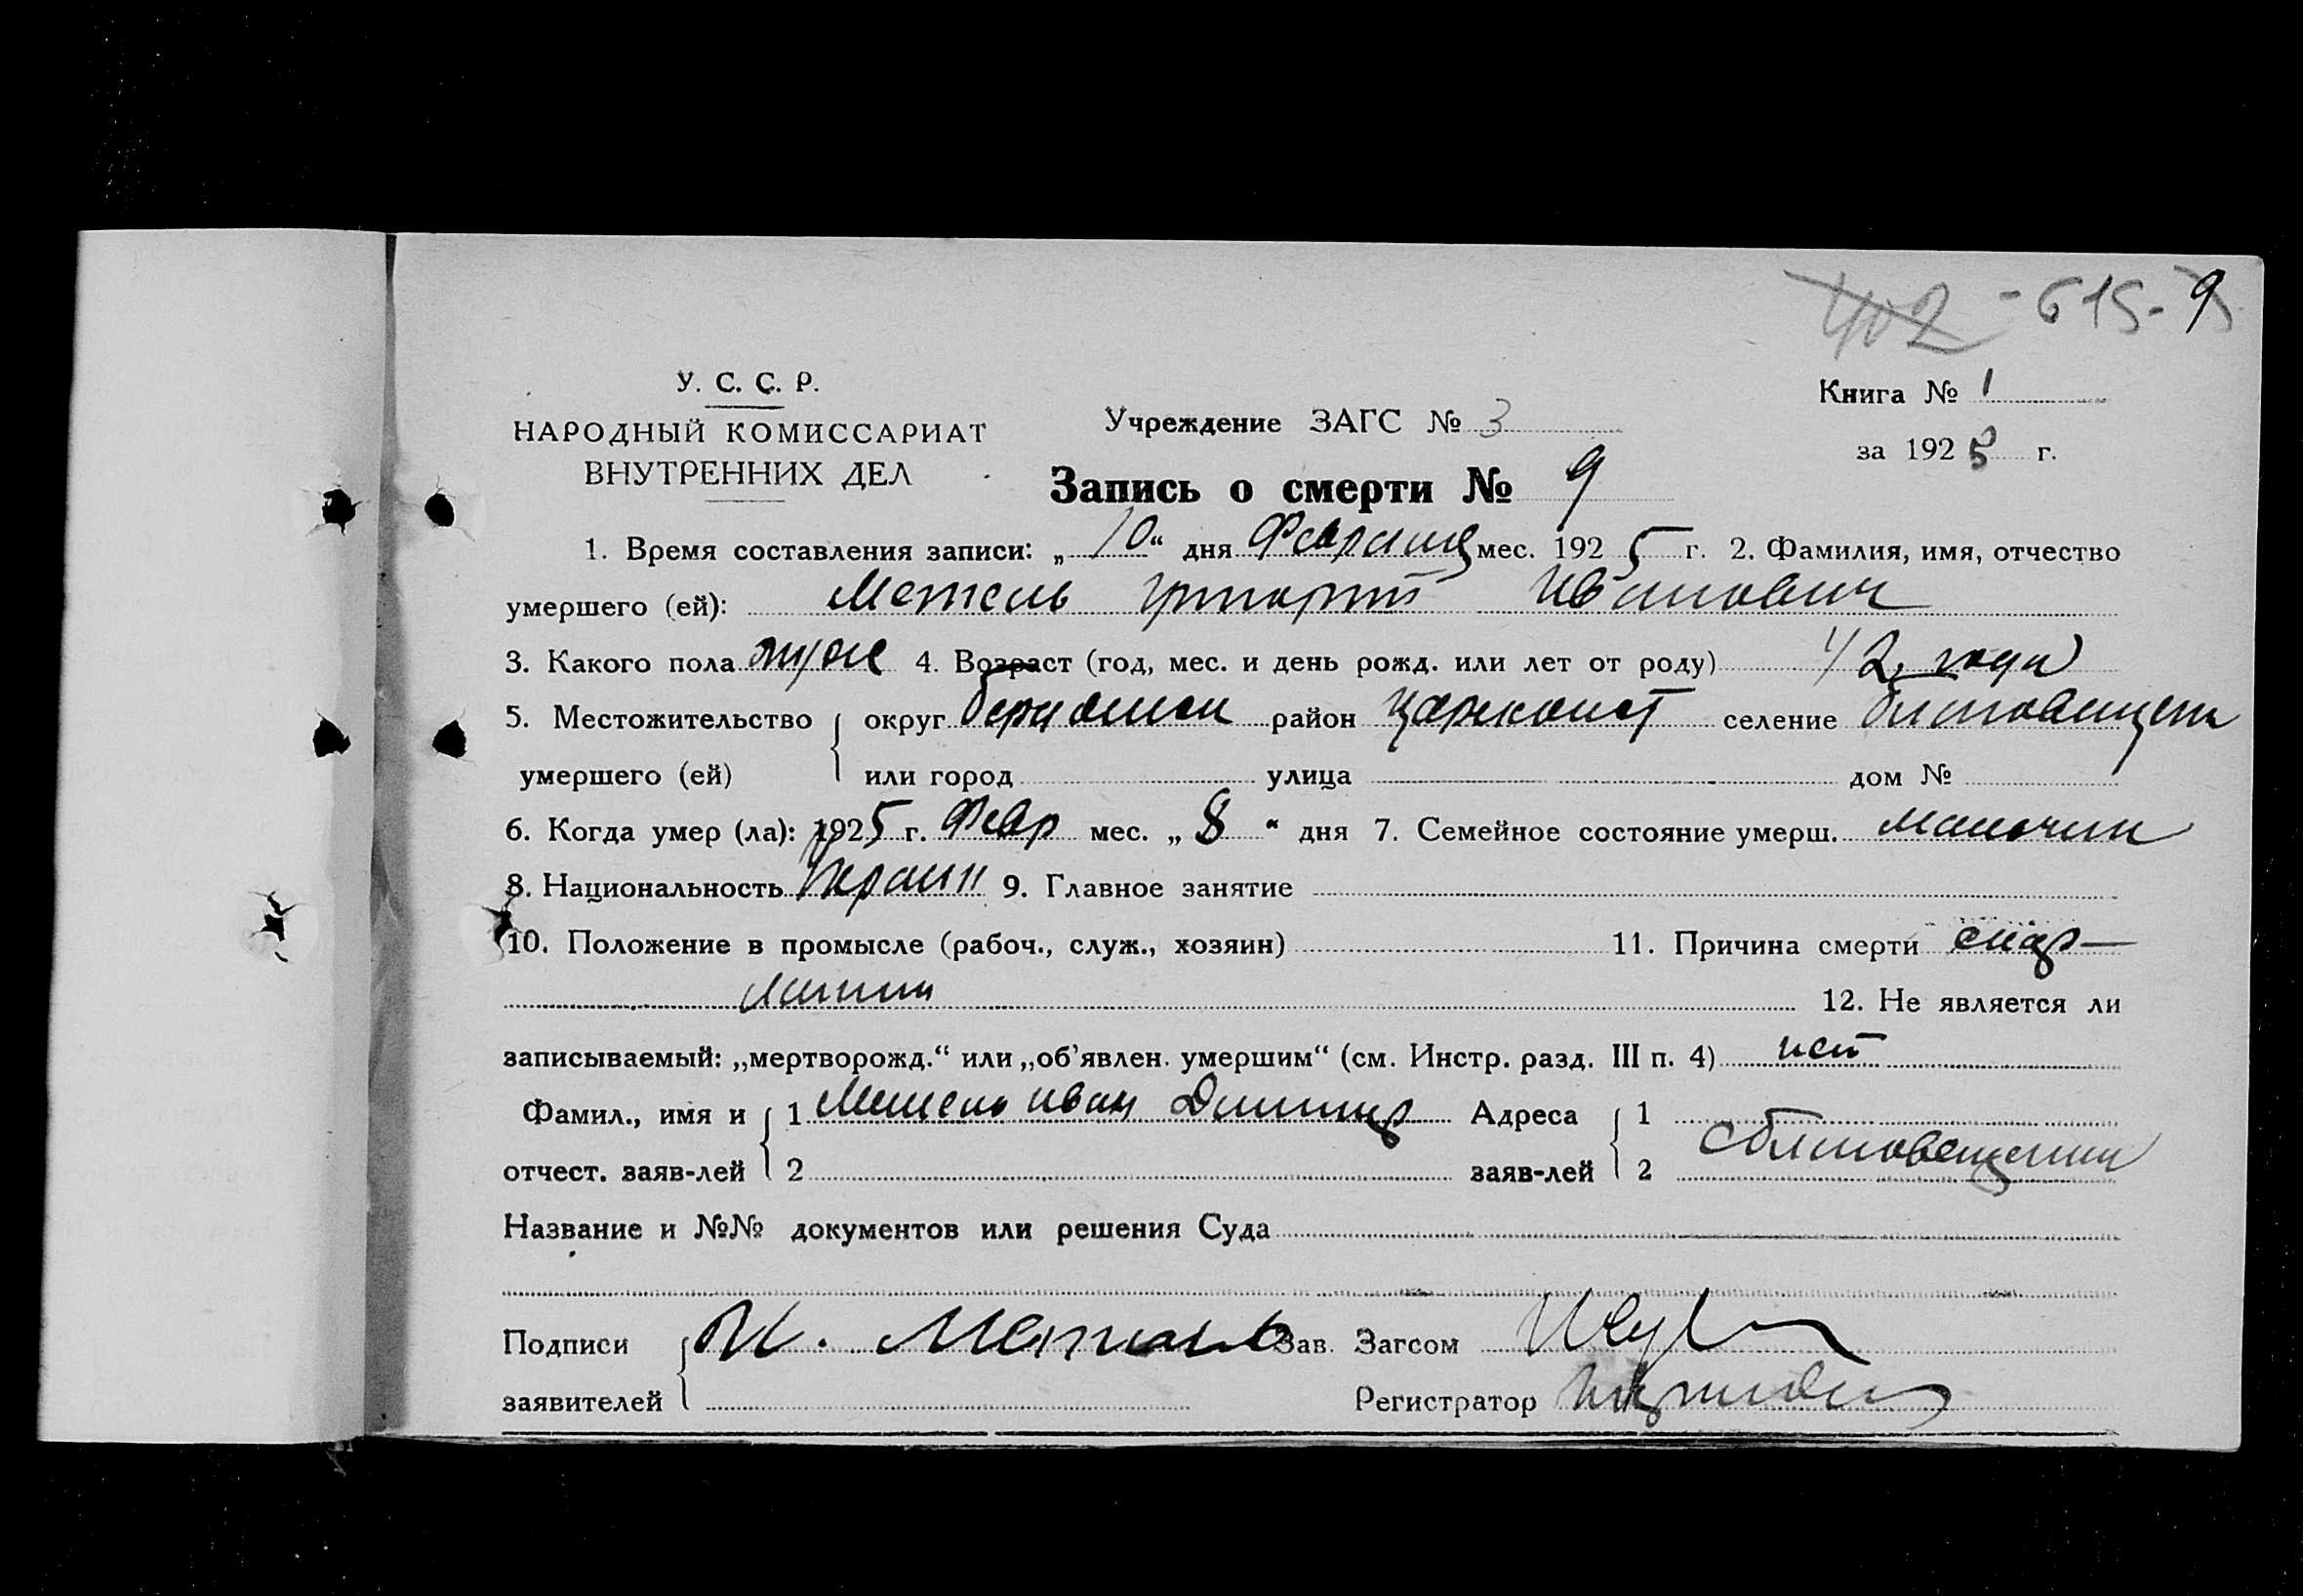 402 - 615 - 9
У. С. С. Р.
НАРОДНЫЙ КОМИССАРИАТ
ВНУТРЕННИХ ДЕЛ
Учреждение ЗАГС № 3
Книга № 1
за 1925 г.
Запись о смерти № 9
1. Время составления записи: „ 10 “ дня Февраля мес. 1925 г. 2. Фамилия, имя, отчество
умершего (ей): Метель Григорий Иванович
3. Какого пола муж 4. Возраст (год, мес. и день рожд. или лет от роду) 1/2 года
5. Местожительство округ район селение
умершего (ей) или город улица дом №
6. Когда умер (ла): 1925 г. Февр мес. „ 8 “ дня 7. Семейное состояние умерш.
8. Национальность Украин 9. Главное занятие
10. Положение в промысле (рабоч., служ., хозяин) 11. Причина смерти скар–
латин 12. Не является ли
записываемый: „мертворожд.“ или „об’явлен. умершим“ (см. Инстр. разд. III п. 4) нет
Фамил., имя и 1 Метель Иван Дмитр Адреса 1
отчест. заяв-лей 2 заяв-лей 2
Название и №№ документов или решения Суда
Подписи И. Метель Зав. Загсом
заявителей Регистратор